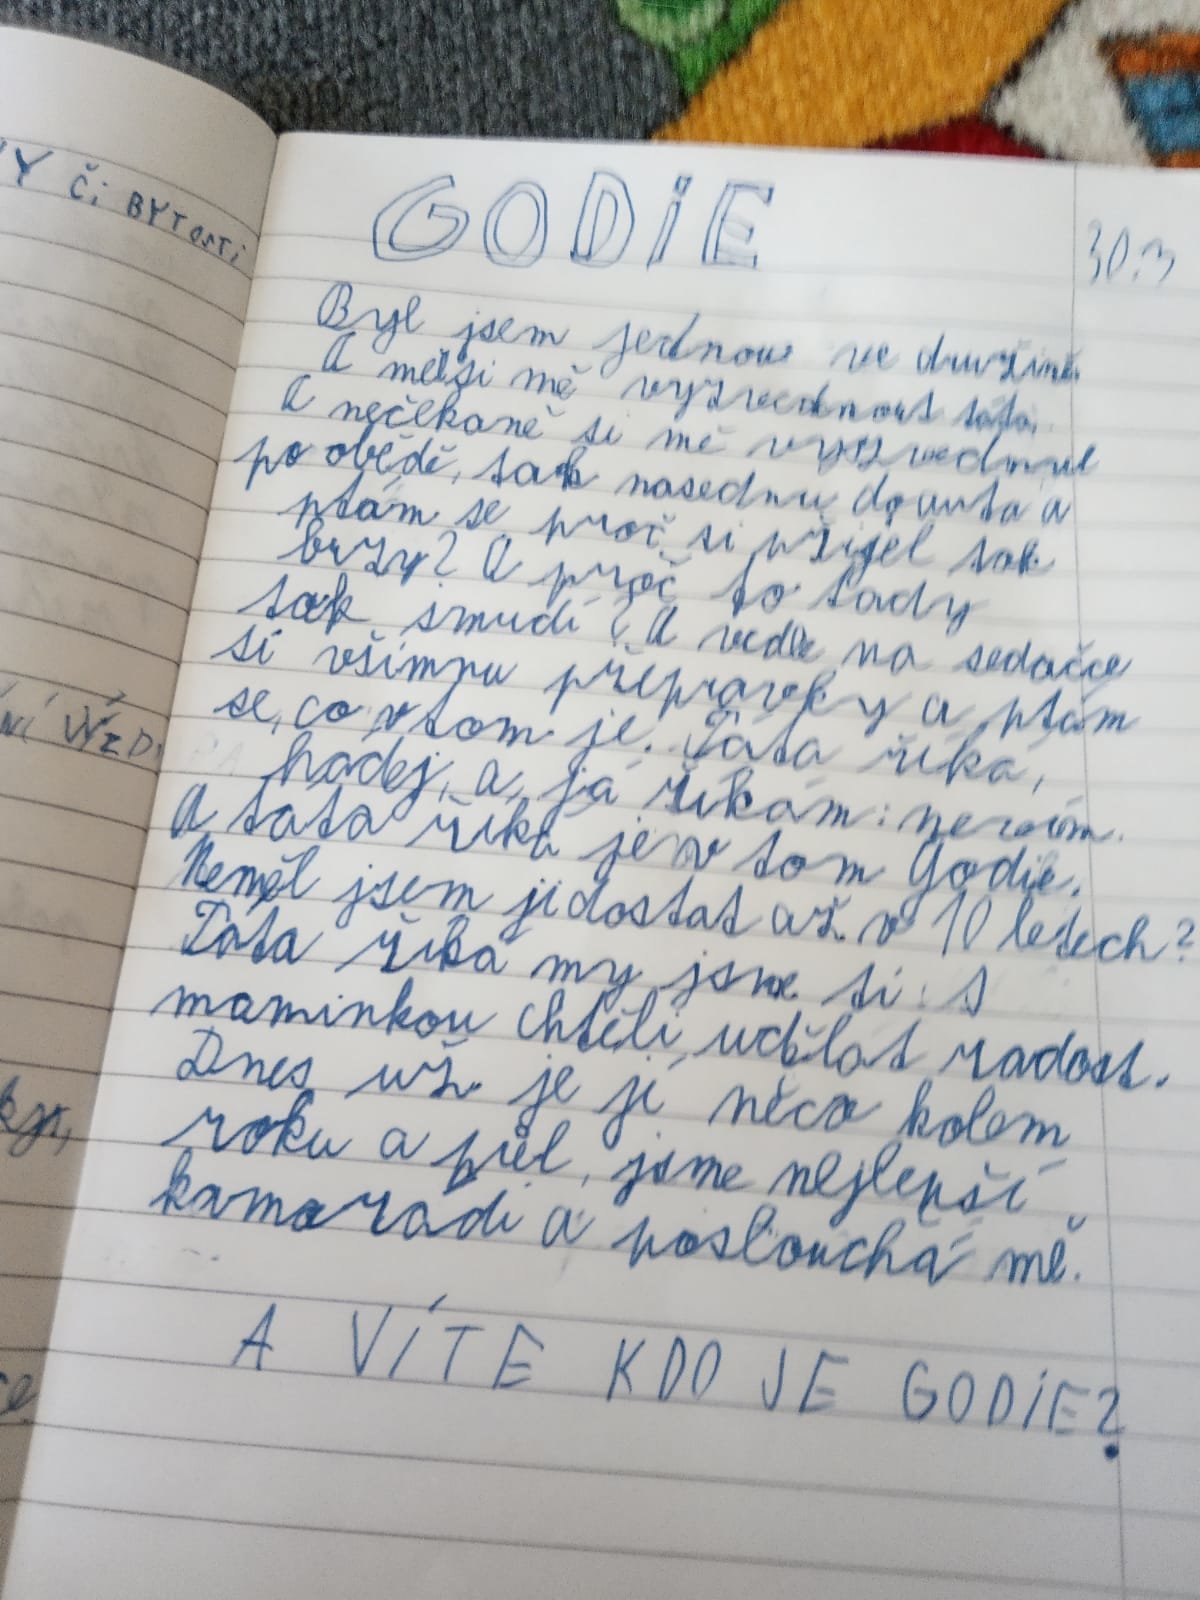 Y Či BYTOSTi
NÍ VÝZD
GODiE
30.3
Byl jsem jednou ve družině.
A měl si mě vyzvednout táta.
A nečekaně si mě vyzvednul
po obědě, tak nasednu do auta a
ptám se proč si přijel tak
brzy? A proč to tady
tak smudí? A vedle na sedačce
si všimnu přepravky a ptám
se, co v tom je. Táta říká,
hádej, a já říkám: nevím.
A táta říká je v tom Godie.
Neměl jsem ji dostat až v 10 letech?
Táta říká my jsme ti s
maminkou chtěli udělat radost.
Dnes už je jí něco kolem
roku a půl, jsme nejlepší
kamarádi a poslouchá mě.
A VÍTE KDO JE GODiE?